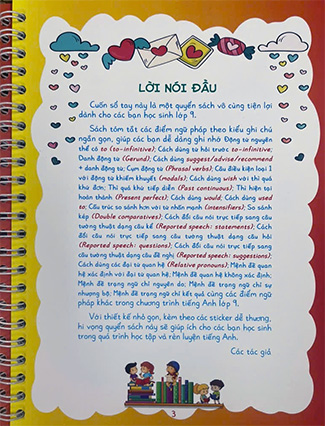 LỜI NÓI ĐẦU
Cuốn sổ tay này là một quyển sách vô cùng tiện lợi
dành cho các bạn học sinh lớp 9.
Sách tóm tắt các điểm ngữ pháp theo kiểu ghi chú
ngắn gọn, giúp các bạn dễ dàng ghi nhớ: Động từ nguyên
thể có to (to-infinitive); Cách dùng từ hỏi trước to-infinitive;
Danh động từ (Gerund); Cách dùng suggest/advise/recommend
+ danh động từ; Cụm động từ (Phrasal verbs); Câu điều kiện loại 1
với động từ khiếm khuyết (modals); Cách dùng wish với thì quá
khứ đơn; Thì quá khứ tiếp diễn (Past continuous); Thì hiện tại
hoàn thành (Present perfect); Cách dùng would; Cách dùng used
to; Cấu trúc so sánh hơn với từ nhấn mạnh (Intensifiers); So sánh
kép (Double comparatives); Cách đổi câu nói trực tiếp sang câu
tường thuật dạng câu kể (Reported speech: statements); Cách
đổi câu nói trực tiếp sang câu tường thuật dạng câu hỏi
(Reported speech: questions); Cách đổi câu nói trực tiếp sang
câu tường thuật dạng câu đề nghị (Reported speech: suggestions);
Cách dùng các đại từ quan hệ (Relative pronouns); Mệnh đề quan
hệ xác định với đại từ quan hệ; Mệnh đề quan hệ không xác định;
Mệnh đề trạng ngữ chỉ nguyên do; Mệnh đề trạng ngữ chỉ sự
nhượng bộ; Mệnh đề trạng ngữ chỉ kết quả cùng các điểm ngữ
pháp khác trong chương trình tiếng Anh lớp 9.
Với thiết kế nhỏ gọn, kèm theo các sticker dễ thương,
hi vọng quyển sách này sẽ giúp ích cho các bạn học sinh
trong quá trình học tập và rèn luyện tiếng Anh.
Các tác giả
3